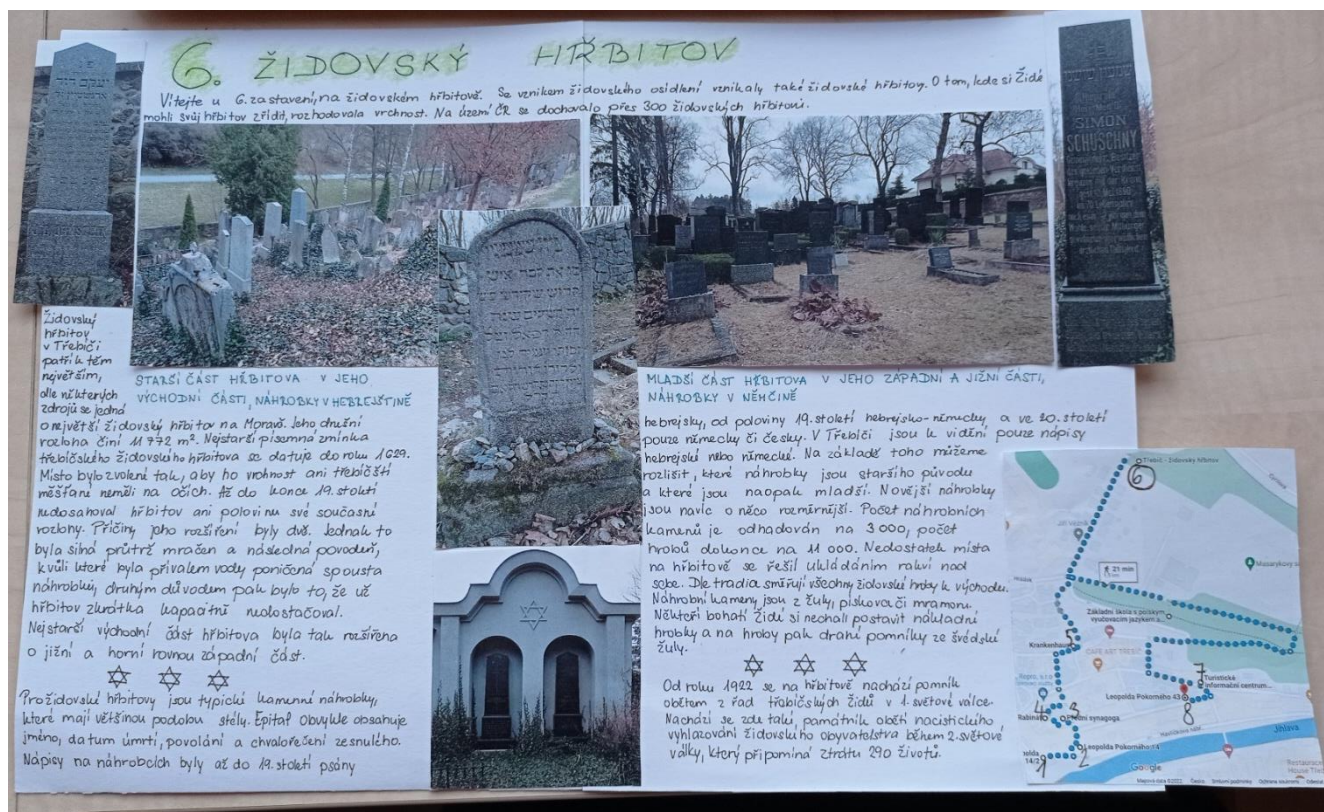 6. ŽIDOVSKÝ HŘBITOV
Vítejte u 6. zastavení, na židovském hřbitově. Se vznikem židovského osídlení vznikaly také židovské hřbitovy. O tom, kde si Židé
mohli svůj hřbitov zřídit, rozhodovala vrchnost. Na území ČR se dochovalo přes 300 židovských hřbitovů.
SIMON
SCHUSCHNY
Židovský
hřbitov
v Třebíči
patří k těm
největším,
dle některých
zdrojů se jedná
o největší židovský hřbitov na Moravě. Jeho dnešní
rozloha činí 11 772 m². Nejstarší písemná zmínka
třebíčského židovského hřbitova se datuje do roku 1629.
Místo bylo zvoleno tak, aby ho vrchnost ani třebíčští
měšťané neměli na očích. Až do konce 19. století
nedosahoval hřbitov ani polovinu své současné
rozlohy. Příčiny jeho rozšíření byly dvě. Jednak to
byla silná průtrž mračen a následná povodeň,
kvůli které byla přívalem vody poničena spousta
náhrobků, druhým důvodem pak bylo to, že už
hřbitov zkrátka kapacitně nedostačoval.
Nejstarší východní část hřbitova byla tak rozšířena
o jižní a horní rovnou západní část.
Pro židovské hřbitovy jsou typické kamenné náhrobky,
které mají většinou podobu stély. Epitaf obvykle obsahuje
jméno, datum úmrtí, povolání a chvalořečení zesnulého.
Nápisy na náhrobcích byly až do 19. století psány
STARŠÍ ČÁST HŘBITOVA V JEHO
VÝCHODNÍ ČÁSTI, NÁHROBKY V HEBREJŠTINĚ
MLADŠÍ ČÁST HŘBITOVA V JEHO ZÁPADNÍ A JIŽNÍ ČÁSTI,
NÁHROBKY V NĚMČINĚ
hebrejsky, od poloviny 19. století hebrejsko-německy a ve 20. století
pouze německy či česky. V Třebíči jsou k vidění pouze nápisy
hebrejské nebo německé. Na základě toho můžeme
rozlišit, které náhrobky jsou staršího původu
a které jsou naopak mladší. Novější náhrobky
jsou navíc o něco rozměrnější. Počet náhrobních
kamenů je odhadován na 3 000, počet
hrobů dokonce na 11 000. Nedostatek místa
na hřbitově se řešil ukládáním rakví nad
sebe. Dle tradia směřují všechny židovské hroby k východu.
Náhrobní kameny jsou z žuly, pískovce či mramoru.
Někteří bohatí Židé si nechali postavit nákladné
hrobky a na hroby pak drahé pomníky ze švédské
žuly.
Od roku 1922 se na hřbitově nachází pomník
obětem z řad třebíčských židů v 1. světové válce.
Nachází se zde také, památník obětí nacistického
vyhlazování židovského obyvatelstva během 2. světové
války, který připomíná ztrátu 290 životů.
Třebíč - židovský hřbitov
6
21 min
Masarykovo
Základní škola s polským
vyučovacím jazykem
Krankenhaus
5
CAFE ART TŘEBÍČ
7
Turistické
informační centrum...
Leopolda Pokorného 43
8
4
Rabinát
3
Přední synagoga
Leopolda Pokorného
2
1
Jihlava
Google